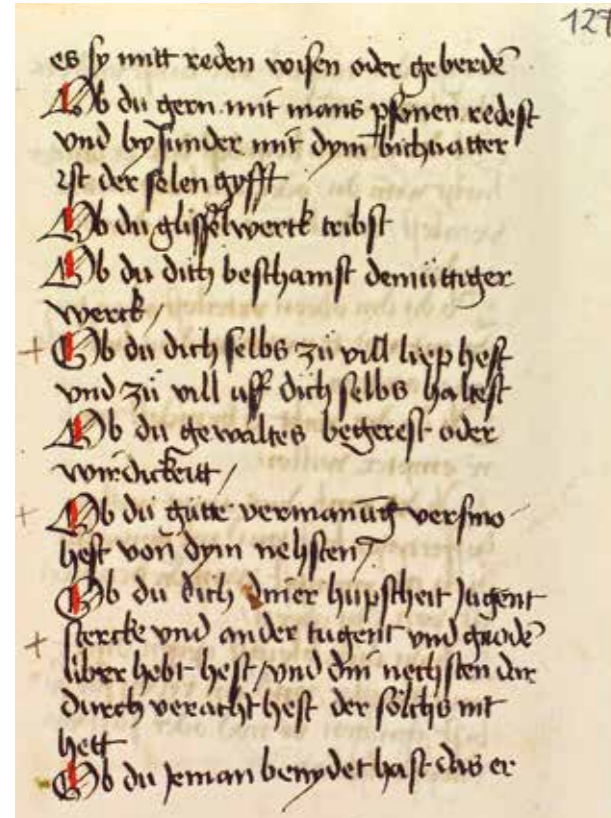 127
es sy mitt reden wisen oder geberde̅
Ob du gern mit mans p̲sonen redest
vnd bysunder mit dym bichtuatter
ist der selen gyfft
Ob du glissetwerck tribst
Ob du dich beschamst demüttiger
werck /
Ob du dich selbs zü vill liep hest
vnd zü vill uff dich selbs haltest
Ob du gewaltes begerest oder
wirdickeitt /
Ob du gütte vermanu̅g versmo
hest von dym nehsten
Ob du dich diner hüpscheit Jugent
stercke vnd ander tugent vnd gnode̅
liber hebt hest / vnd din nechsten dar
durch veracht hest der sölichs nit
hett
Ob du Jeman benydet hast das er